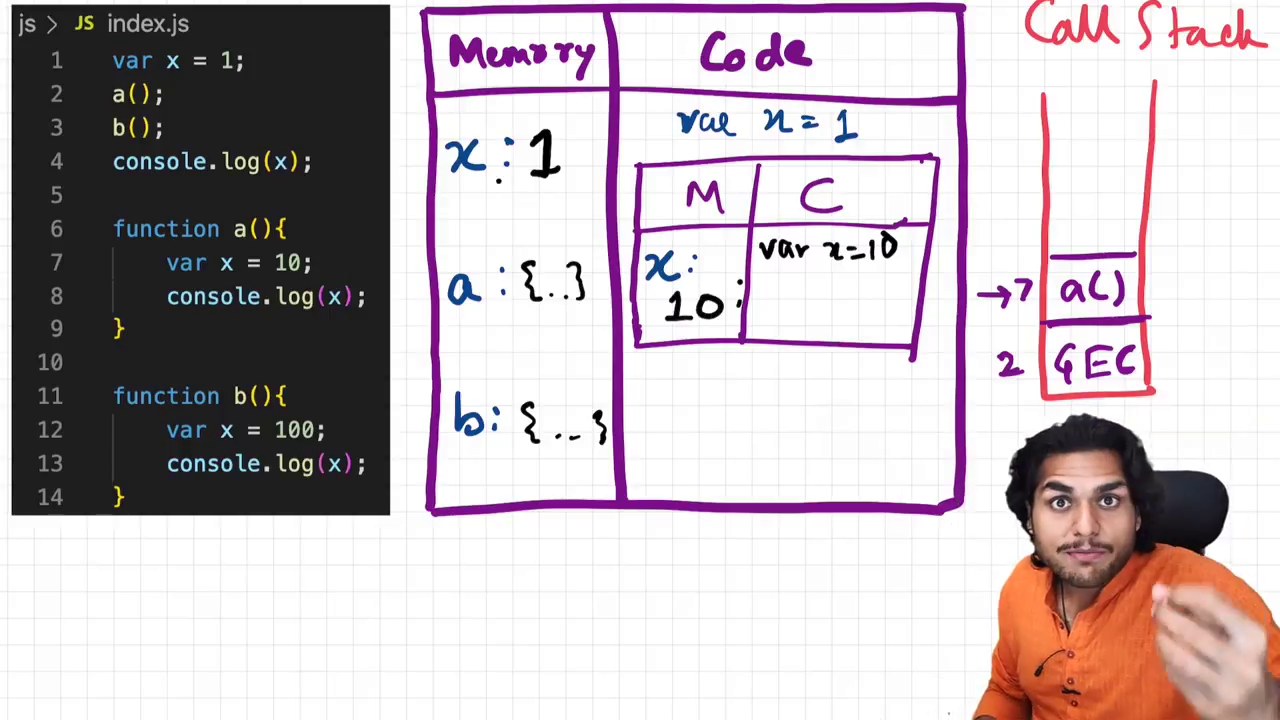 js > JS index.js
1 var x = 1;
2 a();
3 b();
4 console.log(x);
5
6 function a(){
7 var x = 10;
8 console.log(x);
9 }
10
11 function b(){
12 var x = 100;
13 console.log(x);
14 }
Memory
Code
x : 1
var x = 1
a : {..}
b : {..}
M
C
x:
10
var x=10
Call Stack
→ 7 a()
2 GEC